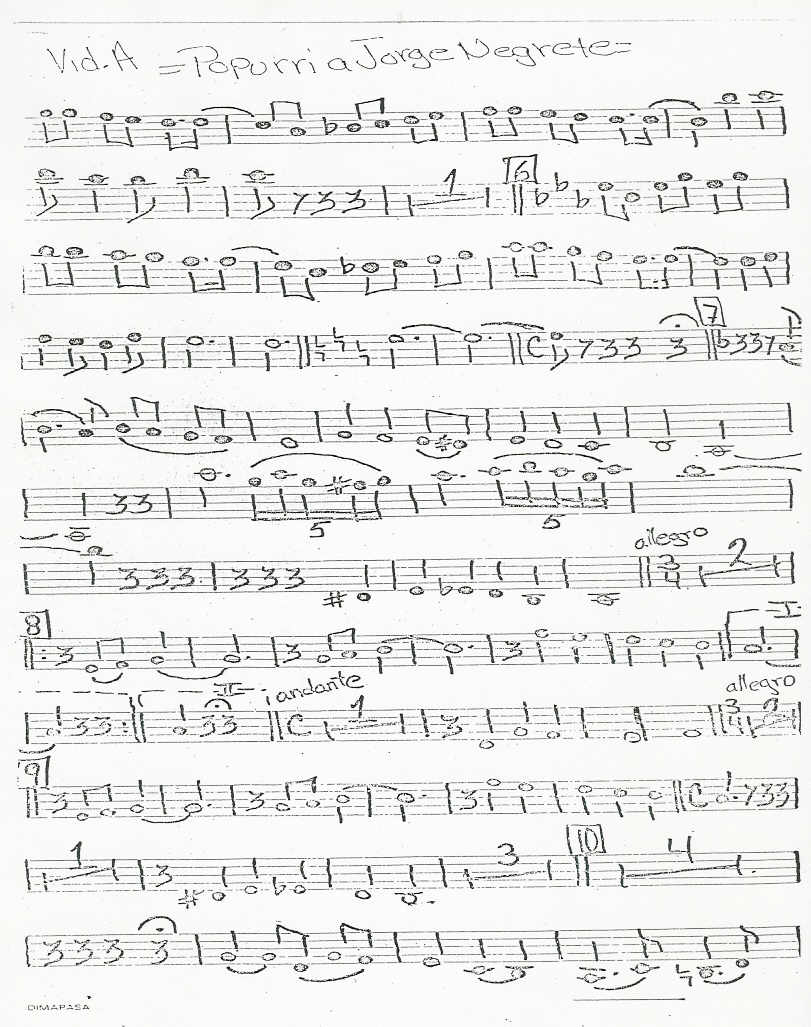 Vid. A =Popurri a Jorge Negrete=
1 6
7
5 5
allegro
3 4 2
8 I.
II andante allegro
1 3 4 2
9
1 3 10 4
DIMAPASA